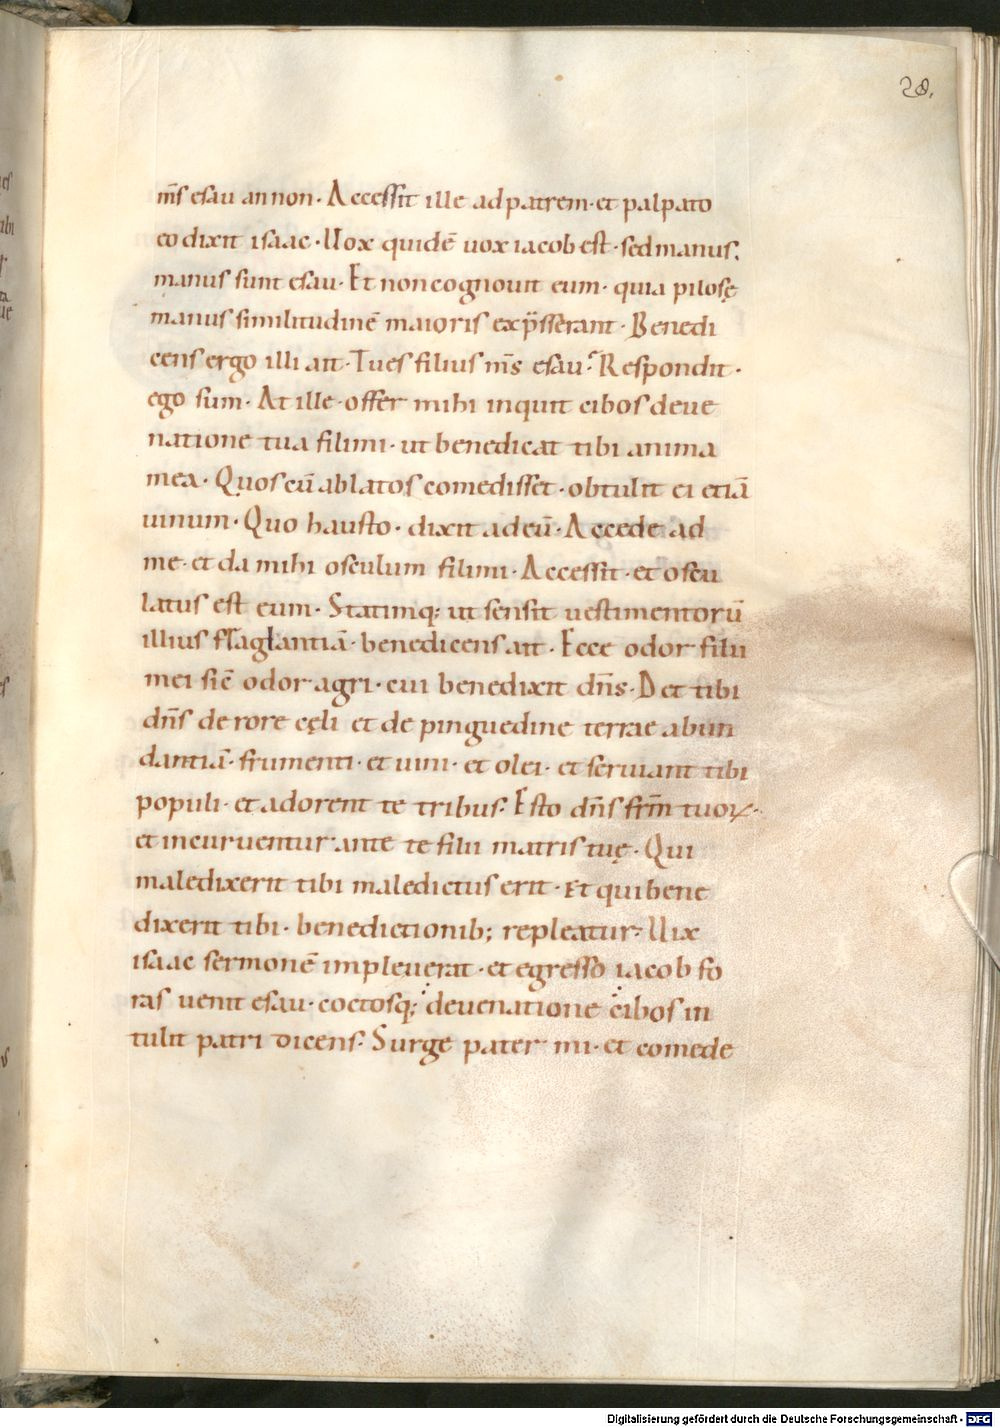 28.
m̄s esau an non · Accessit ille ad patrem · et palpato
eo dixit isaac · Uox quidē uox iacob est · sed manus;
manus sunt esau · Et non cognouit eum · quia pilosę
manus similitudinē maioris exp̄sserant · Benedi
cens ergo illi ait · Tu es filius m̄s esau? Respondit ·
ego sum · At ille · offer mihi inquit cibos de ue
natione tua fili mi · ut benedicat tibi anima
mea · Quos cū ablatos comedisset · obtulit ei etiā
uinum · Quo hausto · dixit ad eū · Accede ad
me · et da mihi osculum fili mi · Accessit · et oscu
latus est eum · Statimq; ut sensit uestimentorū
illius flaglantiā · benedicens ait · Ecce odor filii
mei sic̄ odor agri · cui benedixit dn̄s · Det tibi
dn̄s de rore cęli et de pinguedine terrae abun
dantiā · frumenti · et uini · et olei · et seruiant tibi
populi · et adorent te tribus · Esto dn̄s frm̄ tuoꝝ ·
et incuruentur ante te filii matris tuę · Qui
maledixerit tibi maledictus erit · Et qui bene
dixerit tibi · benedictionib; repleatur · Uix
isaac sermonē impleuerat · et egresso iacob fo
ras uenit esau · coctosq; de uenatione cibos in
tulit patri dicens · Surge pater mi · et comede
Digitalisierung gefördert durch die Deutsche Forschungsgemeinschaft - DFG